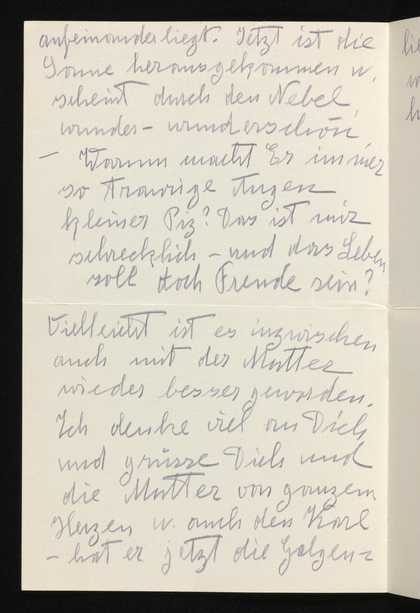 aufeinander liegt. Jetzt ist die
Sonne herausgekommen u.
scheint durch den Nebel
wunder- wunderschön
– Warum macht Er immer
so traurige Augen
kleiner Piz? Das ist mir
schrecklich – und das Leben
soll doch Freude sein?
Vielleicht ist es inzwischen
auch mit der Mutter
wieder besser geworden.
Ich denke viel an Dich
und grüsse Dich und
die Mutter von ganzem
Herzen u. auch den Karl
– hat er jetzt die Galgen=